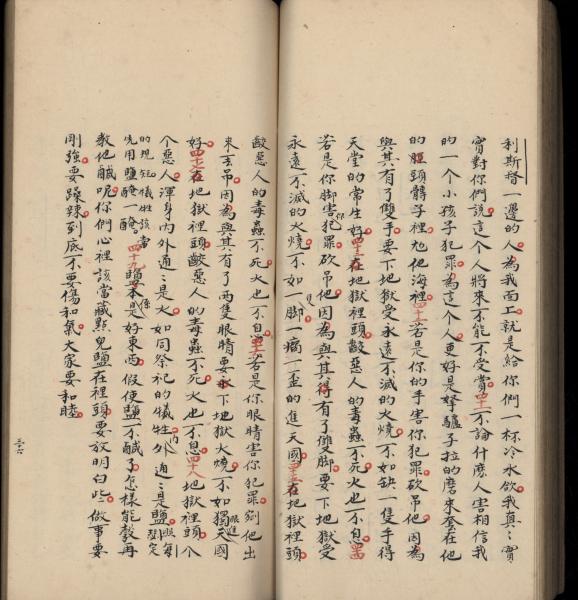 利斯督一邊的人為我面上就是給你們一杯冷水飲我真々實
實對你們說這個人將來不能不受賞四二不論什麼人害相信我
的一個小孩子犯罪為這個人更好是拏驢子拉的磨來套在他
的頸頭髒子裡尥他海裡四三若是你的手害你犯罪砍吊他因為
與其有了雙手要下地獄受永遠不滅的火燒不如缺一隻手得
天堂的常生好四三在地獄裡頭齩惡人的毒蟲不死火也不息四四
若是你脚害你犯罪砍吊他因為與其得有了雙脚要下地獄受
永遠不滅的火燒不如一脚一瘸一歪的進天國四五在地獄裡頭
齩惡人的毒蟲不死火也不息四六若是你眼睛害你犯罪剜他出
來去吊因為與其有了兩隻眼睛要下地獄火燒不如獨眼進天國
好四七在地獄裡頭齩惡人的毒蟲不死火也不息四八地獄裡頭个
個惡人渾身內外通々是火如同祭祀的犧牲內外通々是鹽照每
的規矩犧牲該當
先用鹽醃一醃四十九鹽本係是好東西假使鹽不鹹了怎樣能彀再
教他鹹呢你們心裡該當藏點兒鹽在裡頭要放明白些做事要
剛強要躁辣到底不要傷和氣大家要和睦
三六